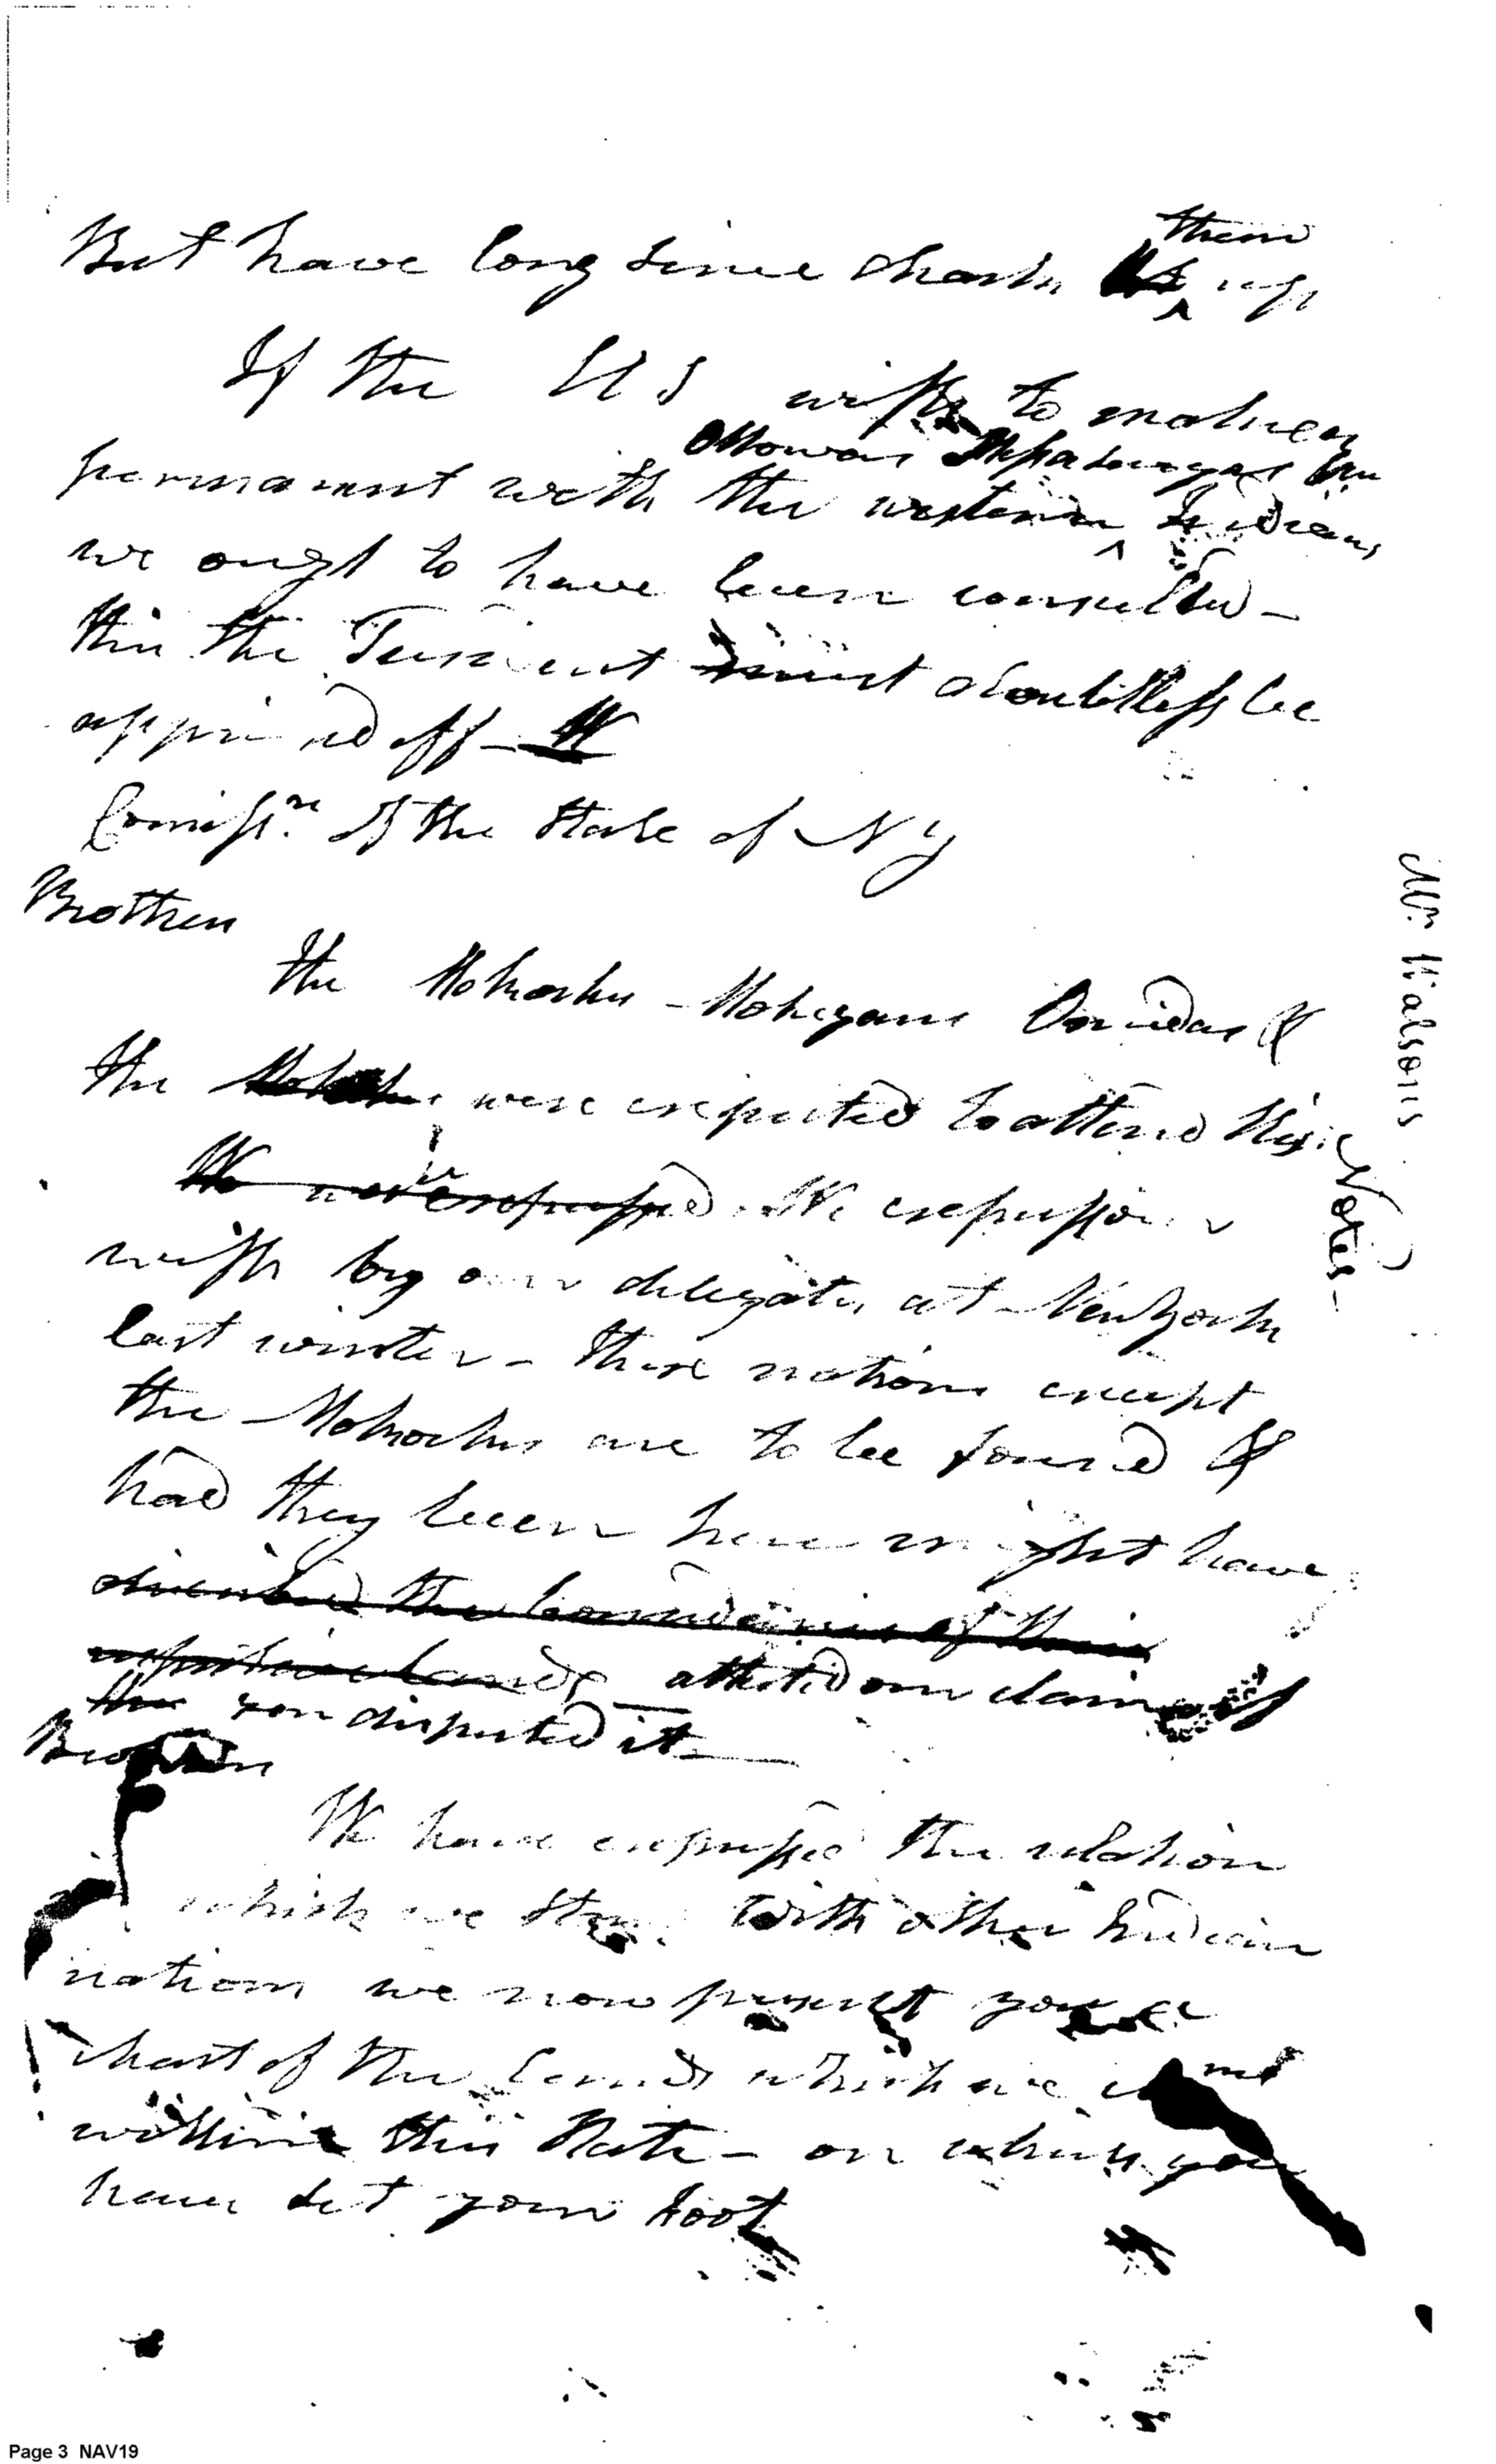 them
But have long since shook up
If the US wish to
Ottowas
permanent with the western Indians
we ought to have been consulted –
this the Tunicut must doubtless be
apprised off –
Comissrs. of the State of NY
Brothers
the Mohawks – Mohegans Oneidas &
the were expected to attend this
We never expressed We expressd
wish by our delegates at New York
last winter – these nations except
the Mohawks are to be found &
had they been here might have
described the boundaries of their
respective lands attested our claim
the you disputed it –
Brothers
We have expressed the relation
which we stand with other Indian
nations we now present you a
chart of the lands which we
within this State – on which you
have set your foot
Mr. Walsons
Notes –
Page 3 NAV19